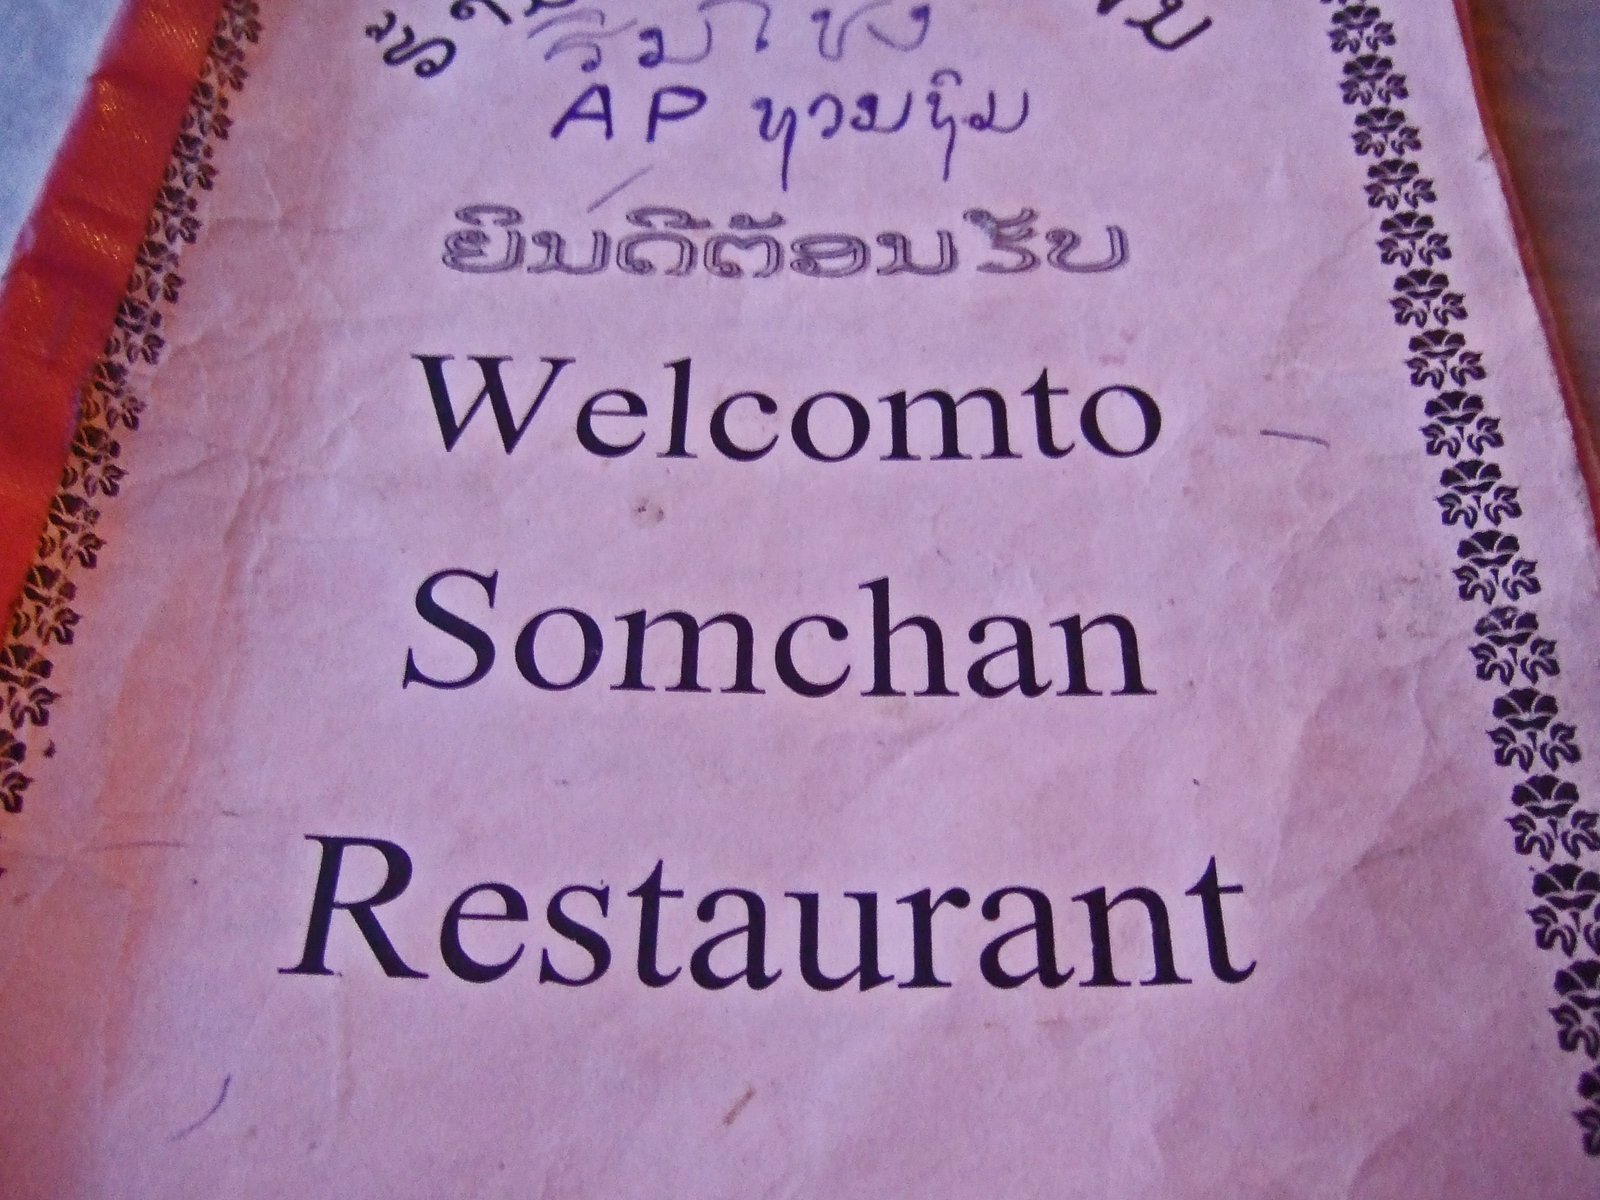 AP ທວມທິມ
ຍິນດີຕ້ອນຮັບ
Welcomto
Somchan
Restaurant